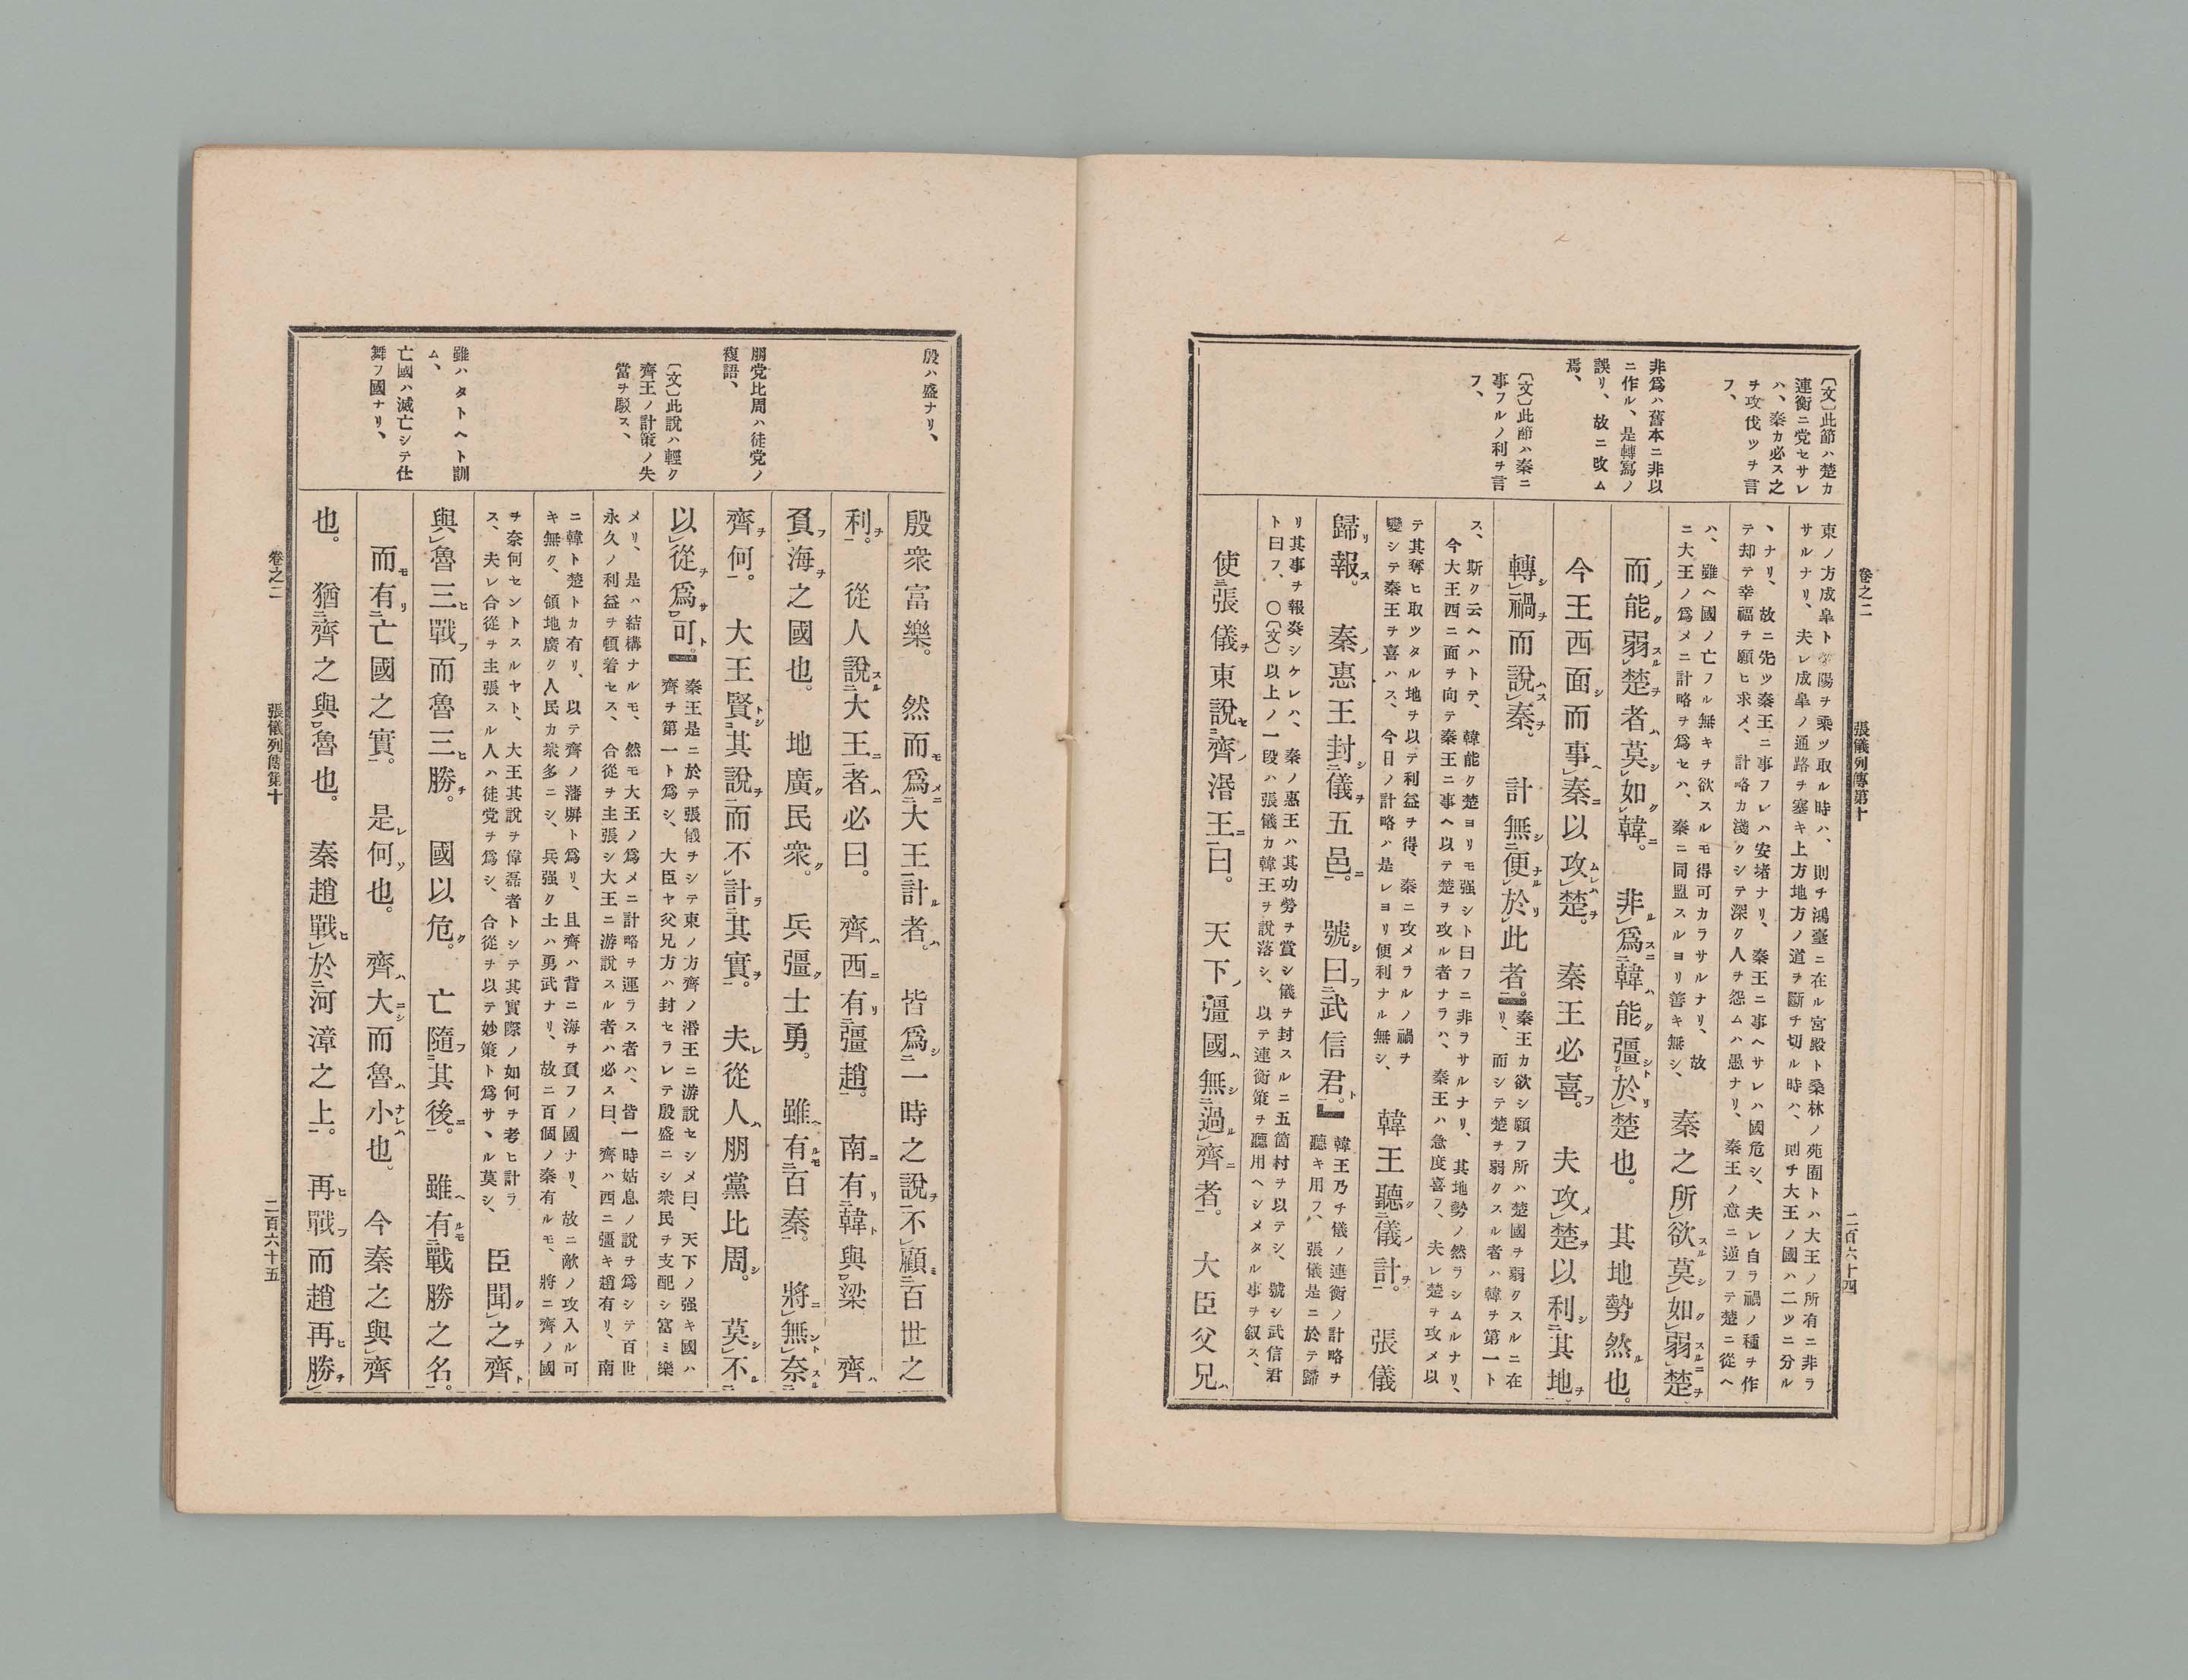 〔文〕此節ハ楚カ
連衡ニ党セサレ
ハ、秦カ必ス之
ヲ攻伐ツヲ言
フ、
非爲ハ舊本ニ非以
ニ作ル、是轉寫ノ
誤リ、故ニ改ム
焉、
〔文〕此節ハ秦ニ
事フルノ利ヲ言
フ、
東ノ方成皐ト滎陽ヲ乘ッ取ル時ハ、則チ鴻臺ニ在ル宮殿ト桑林ノ苑囿トハ大王ノ所有ニ非ラ
サルナリ、夫レ成皐ノ通路ヲ塞キ上方地方ノ道ヲ斷チ切ル時ハ、則チ大王ノ國ハ二ツニ分ル
ヽナリ、故ニ先ツ秦王ニ事フレハ安堵ナリ、秦王ニ事ヘサレハ國危シ、夫レ自ラ禍ノ種ヲ作
テ却テ幸福ヲ願ヒ求メ、計略カ淺クシテ深ク人ヲ怨ムハ愚ナリ、秦王ノ意ニ逆フテ楚ニ從ヘ
ハ、雖ヘ國ノ亡フル無キヲ欲スルモ得可カラサルナリ、故
ニ大王ノ爲メニ計略ヲ爲セハ、秦ニ同盟スルヨリ善キ無シ、
秦之所欲スル莫シ如クレ弱スルニ楚ヲ
而ノ能ク弱スルレ楚ヲ者ハ莫シレ如クレ韓ニ。非ルレ爲スニ二韓ハ能ク彊シト於リレ楚也。其地勢然ル也。
今王西面シ而事ヘレ秦ニ以攻ムレハレ楚ヲ。秦王必喜フ。夫攻メレ楚ヲ以利シ二其地ヲ一
轉シレ禍ヲ而説ハスレ秦ヲ。計無シ二便ナル於リレ此者一。
秦王カ欲シ願フ所ハ楚國ヲ弱クスルニ在
リ、而シテ楚ヲ弱クスル者ハ韓ヲ第一ト
ス、斯ク云ヘハトテ、韓能ク楚ヨリモ强シト曰フニ非ラサルナリ、其地勢ノ然ラシムルナリ、
今大王西ニ面ヲ向テ秦王ニ事ヘ以テ楚ヲ攻ル者ナラハ、秦王ハ急度喜フ、夫レ楚ヲ攻メ以
テ其奪ヒ取ッタル地ヲ以テ利益ヲ得、秦ニ攻メラルノ禍ヲ
變シテ秦王ヲ喜ハス、今日ノ計略ハ是レヨリ便利ナル無シ、
韓王聽ク二儀ノ計ヲ一。張儀
歸リ報ス。秦ノ惠王封シ二儀ヲ五邑ニ一。號シ曰フ二武信君ト一。
韓王乃チ儀ノ連衡ノ計略ヲ
聽キ用フ、張儀是ニ於テ歸
リ其事ヲ報奏シケレハ、秦ノ惠王ハ其功勞ヲ賞シ儀ヲ封スルニ五箇村ヲ以テシ、號シ武信君
ト曰フ、〇〔文〕以上ノ一段ハ張儀カ韓王ヲ說落シ、以テ連衡策ヲ聽用ヘシメタル事ヲ叙ス、
使二張儀ヲ東説セ二齊ノ湣王ニ一曰。天下ノ彊國ハ無シレ過ルレ齊ニ者一。大臣父兄ハ
卷之二 張儀列傳第十 二百六十四
殷ハ盛ナリ、
朋党比周ハ徒党ノ
複語、
〔文〕此說ハ輕ク
齊王ノ計策ノ失
當ヲ駁ス、
雖ハタトヘト訓
ム、
亡國ハ滅亡シテ仕
舞フ國ナリ、
殷衆富樂。然而モ爲メニ二大王一計ル者ハ。皆爲シ二一時之説ヲ一不レ顧ミ二百世之
利ヲ一。從人説スル二大王ニ一者ハ必曰。齊ハ西ニ有リ二彊趙一。南ニ有リ二韓ト與一レ梁 齊ハ
負フレ海ヲ之國也。地廣ク民衆ク。兵彊ク士勇。雖ヘ有ルモ二百秦一。將ニレ無ントスル二奈一レ
齊ヲ何一。大王賢トシ二其説ヲ一而不レ計ラ二其實ヲ一。夫レ從人ハ朋黨比周シ。莫シレ不ル二
以レ從ヲ爲サ一レ可ト。
秦王是ニ於テ張儀ヲシテ東ノ方齊ノ湣王ニ游說セシメ曰、天下ノ强キ國ハ
齊ヲ第一ト爲シ、大臣ヤ父兄方ハ封セラレテ殷盛ニシ衆民ヲ支配シ富ミ樂
メリ、是ハ結構ナルモ、然モ大王ノ爲メニ計略ヲ運ラス者ハ、皆一時姑息ノ說ヲ爲シテ百世
永久ノ利益ヲ頓着セス、合從ヲ主張シ大王ニ游說スル者ハ必ス曰、齊ハ西ニ彊キ趙有リ、南
ニ韓ト楚トカ有リ、以テ齊ノ藩塀ト爲リ、且齊ハ背ニ海ヲ負フノ國ナリ、故ニ敵ノ攻入ル可
キ無ク、領地廣ク人民カ衆多ニシ、兵强ク土ハ勇武ナリ、故ニ百個ノ秦有ルモ、將ニ齊ノ國
ヲ奈何セントスルヤト、大王其說ヲ偉磊者トシテ其實際ノ如何ヲ考ヒ計ラ
ス、夫レ合從ヲ主張スル人ハ徒党ヲ爲シ、合從ヲ以テ妙策ト爲サヽル莫シ、
臣聞クレ之ヲ齊ト
與レ魯三ヒ戰フ而魯三ヒ勝チ。國以危ク。亡隨フ二其後ニ一。雖ヘ有ルモ二戰勝之名一。
而モ有リ二亡國之實一。是レ何ソ也。齊ハ大ニシ而魯ハ小ナレハ也。今秦之與レ齊
也。猶二齊之與一レ魯也。秦趙戰ヒ二於河漳之上一。再ヒ戰フ而趙再ヒ勝チレ
卷之二 張儀列傳第十 二百六十五